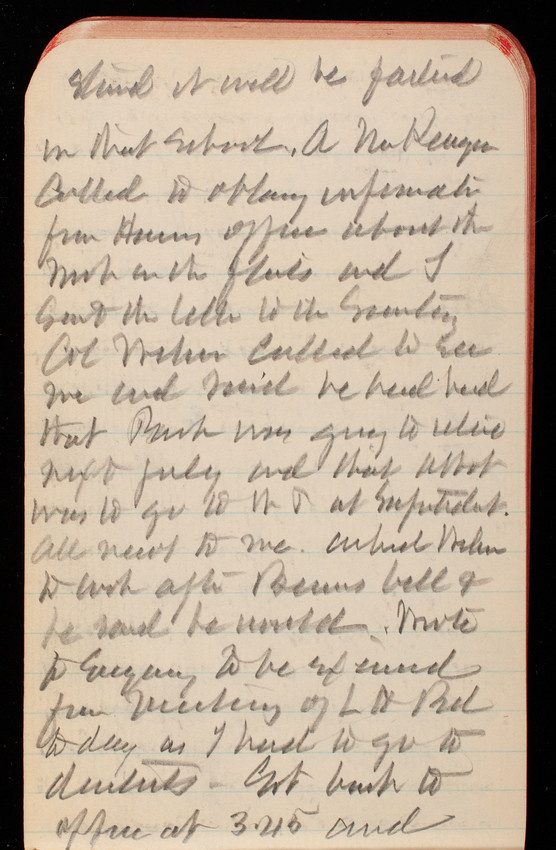 stand it will be
in that School. A Mr
Called to obtain information
from Heavy office about the
work on the flats and I
sent the letter to the Secretary
Col Wilson Called to see
me and said he had heard
that was going to retire
next July and that Abbot
was to go to the at
All news to me. asked Wilson
to look after bill &
he said he would. Wrote
to Gregory to be excused
from Meeting of L H Bd
to day as I had to go to
dentists - Got back to
office at 3.45 and